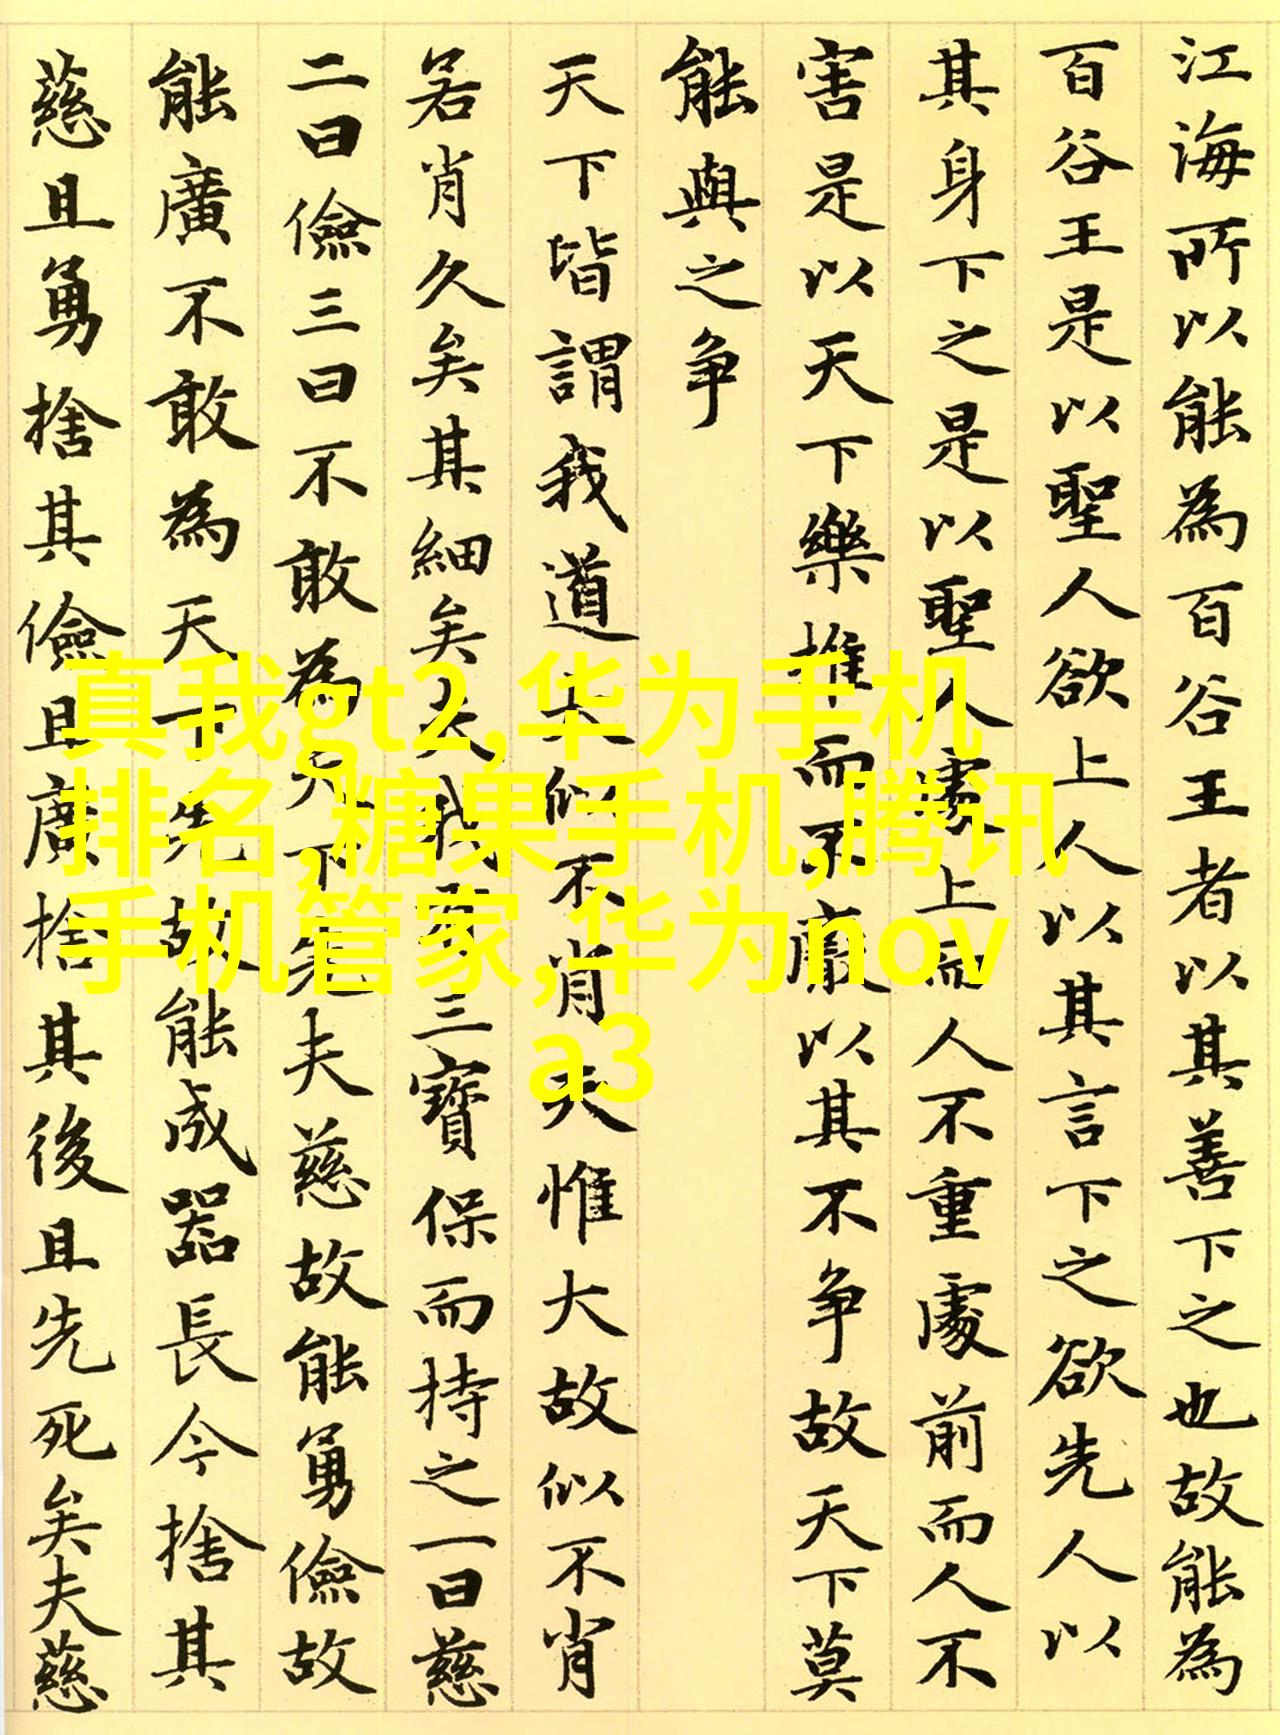 江海所以能為百谷王者以其善下之也故能為
百谷王是以聖人欲上人以其言下之欲先人以
其身下之是以聖人處上而人不重處前而人不
害是以天下樂推而不厭以其不争故天下莫
能與之争
天下皆謂我道大似不肖夫惟大故似不肖
若肖久矣其細矣夫我有三寶保而持之一曰慈
二曰儉三曰不敢為天下先夫慈故能勇儉故
能廣不敢為天下先故能成器長今捨其
慈且勇捨其儉且廣捨其後且先死矣夫慈
真我gt2,华为手机
排名,糖果手机,腾讯
手机管家,华为nov
a3